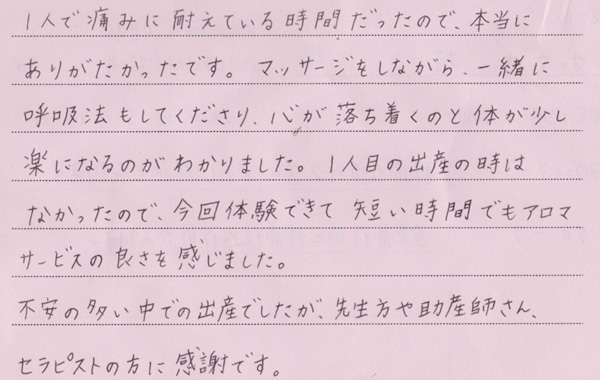 1人で痛みに耐えている時間だったので、本当に
ありがたかったです。マッサージをしながら、一緒に
呼吸法もしてくださり、心が落ち着くのと体が少し
楽になるのがわかりました。1人目の出産の時は
なかったので、今回体験できて短い時間でもアロマ
サービスの良さを感じました。
不安の多い中での出産でしたが、先生方や助産師さん、
セラピストの方に感謝です。